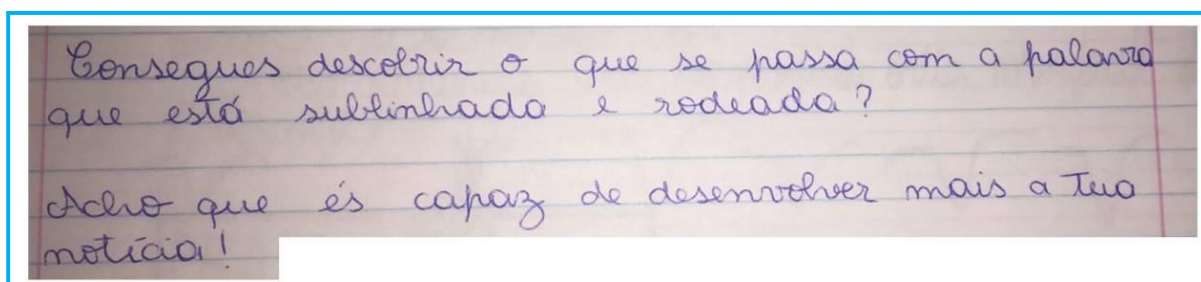 Consegues descobrir o que se passa com a palavra
que está sublinhada e rodeada?
Acho que és capaz de desenvolver mais a tua
notícia!